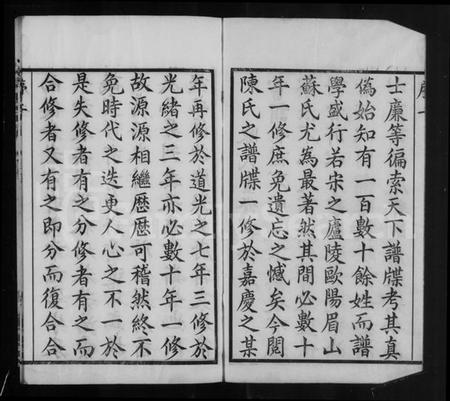 士廉等徧索天下譜牒考其真
偽始知有一百數十餘姓而譜
學盛行若宋之廬陵歐陽眉山
蘇氏尤為最著然其間必數十
年一修庶免遺忘之憾矣今閱
陳氏之譜牒一修於嘉慶之某
年再修於道光之七年三修於
光緒之三年亦必數十年一修
故源源相繼歷歷可稽然終不
免時代之迭更人心之不一於
是失修者有之分修者有之而
合修者又有之即分而復合合